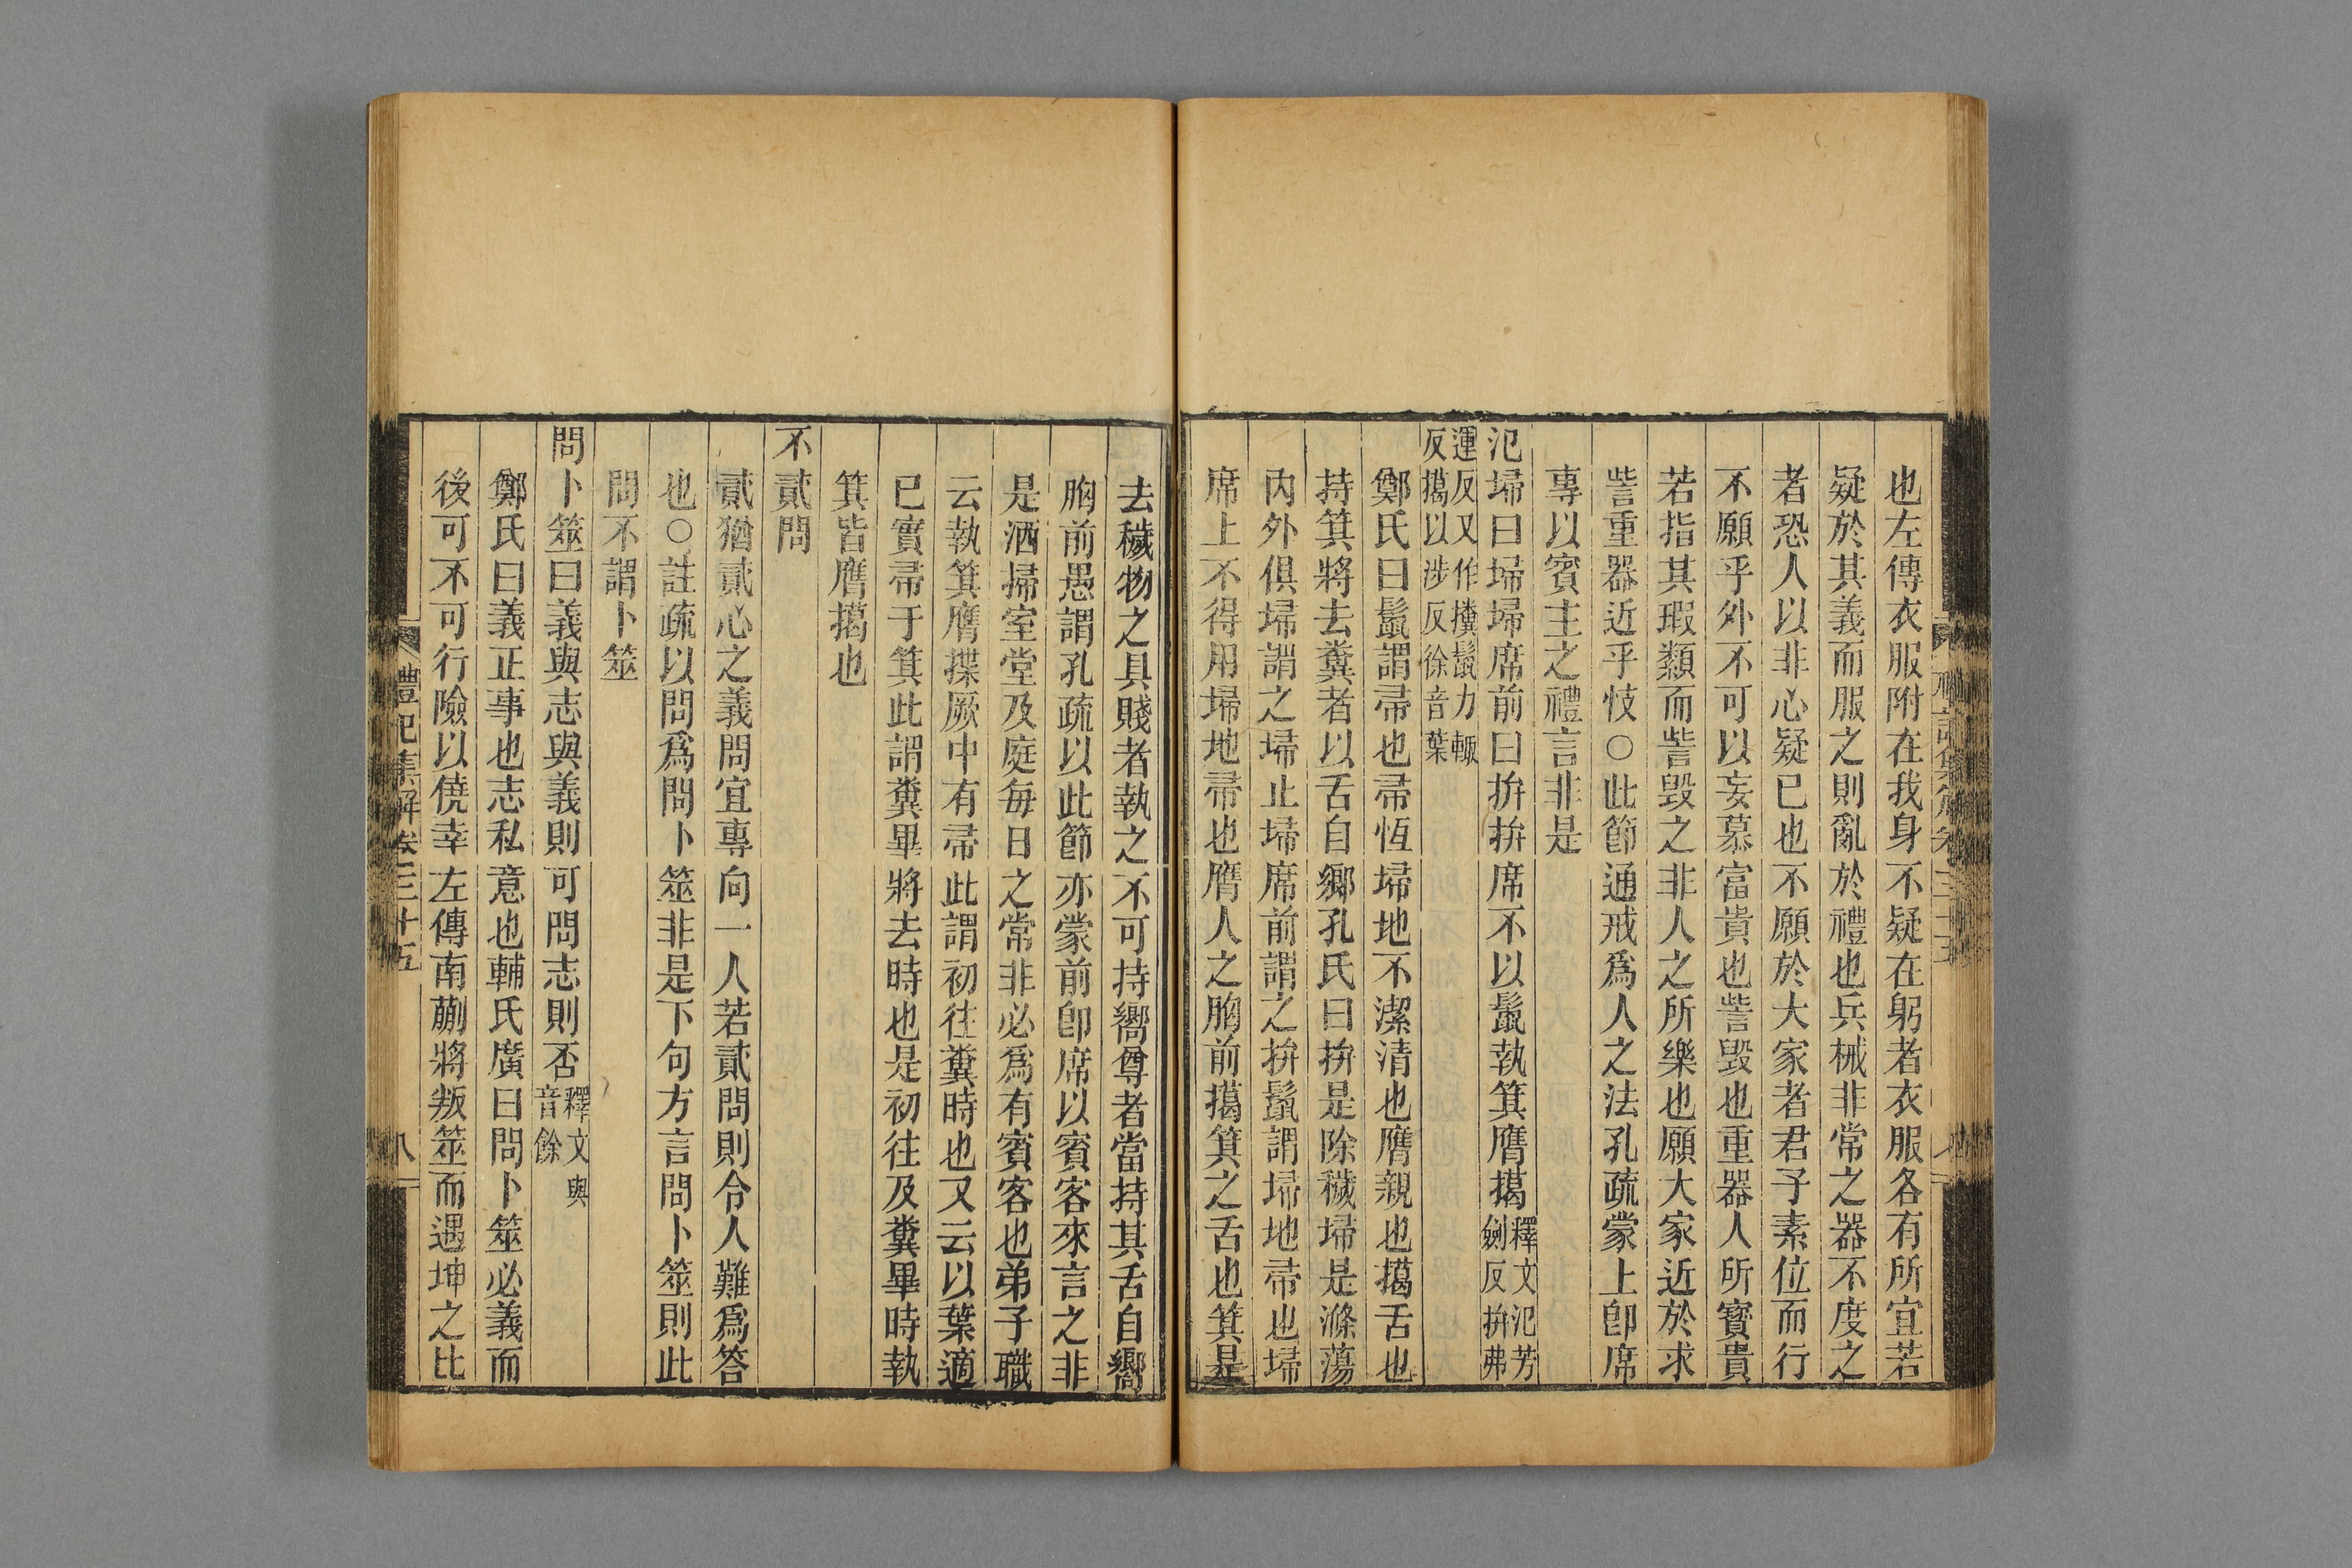 也左傳衣服附在我身不疑在躬者衣服各有所宜若
疑於其義而服之則亂於禮也兵械非常之器不度之
者恐人以非心疑已也不願於大家者君子素位而行
不願乎外不可以妄慕富貴也訾毀也重器人所寳貴
若指其瑕纇而訾毀之非人之所樂也願大家近於求
訾重器近乎忮○此節通戒爲人之法孔疏蒙上卽席
專以賓主之禮言非是
氾埽曰埽埽席前曰拚拚席不以鬣執箕膺擖釋文氾芳
劒反拚弗
運反又作㩳鬣力輙
反擖以涉反徐音葉
鄭氏曰鬣謂帚也帚恆埽地不潔清也膺親也擖舌也
持箕將去糞者以舌自鄉孔氏曰拚是除穢埽是滌蕩
內外俱埽謂之埽止埽席前謂之拚鬣謂埽地帚也埽
席上不得用埽地帚也膺人之胸前擖箕之舌也箕是
去穢物之具賤者執之不可持嚮尊者當持其舌自嚮
胸前愚謂孔疏以此節亦蒙前卽席以賓客來言之非
是洒掃室堂及庭每日之常非必爲有賓客也弟子職
云執箕膺揲厥中有帚此謂初往糞時也又云以葉適
已實帚于箕此謂糞畢將去時也是初往及糞畢時執
箕皆膺擖也
不貳問
貳猶貳心之義問宜專向一人若貳問則令人難爲答
也○註疏以問爲問卜筮非是下句方言問卜筮則此
問不謂卜筮
問卜筮曰義與志與義則可問志則否釋文與
音餘
鄭氏曰義正事也志私意也輔氏廣曰問卜筮必義而
後可不可行險以僥幸左傳南蒯將叛筮而遇坤之比
禮記集解卷三十五
八